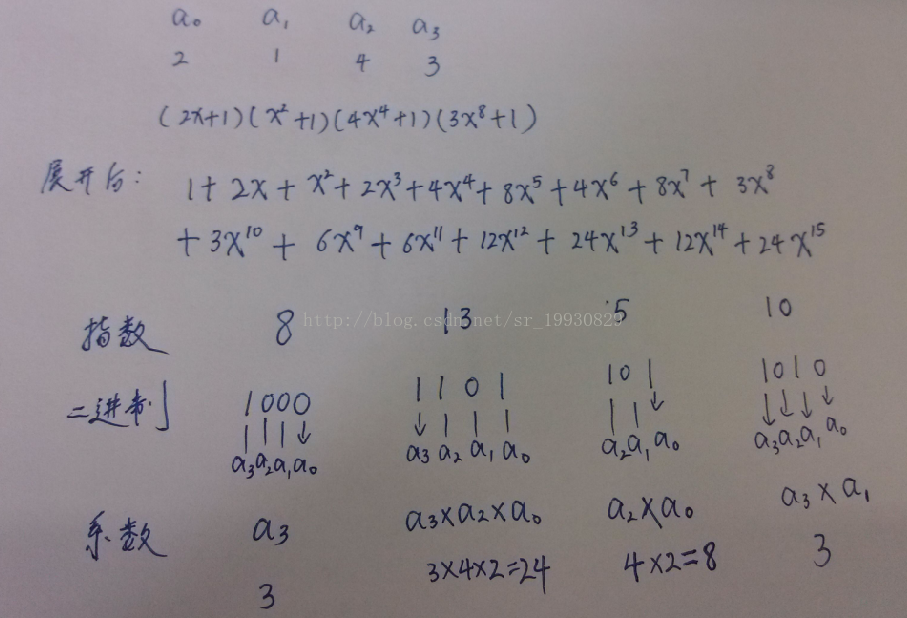 a₀ a₁ a₂ a₃
2 1 4 3
(2x+1)(x²+1)(4x⁴+1)(3x⁸+1)
展开后: 1+2x+x²+2x³+4x⁴+8x⁵+4x⁶+8x⁷+3x⁸
+3x¹⁰+6x⁹+6x¹¹+12x¹²+24x¹³+12x¹⁴+24x¹⁵
指数 8 13 5 10
http://blog.csdn.net/sr_19930829
二进制 1000 1101 101 1010
a₃a₂a₁a₀ a₃a₂a₁a₀ a₂a₁a₀ a₃a₂a₁a₀
系数 a₃ a₃×a₂×a₀ a₂×a₀ a₃×a₁
3 3×4×2=24 4×2=8 3